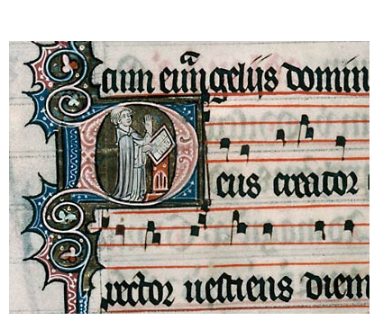 cum euangelijs domin
Deus creator
rector uestiens diem